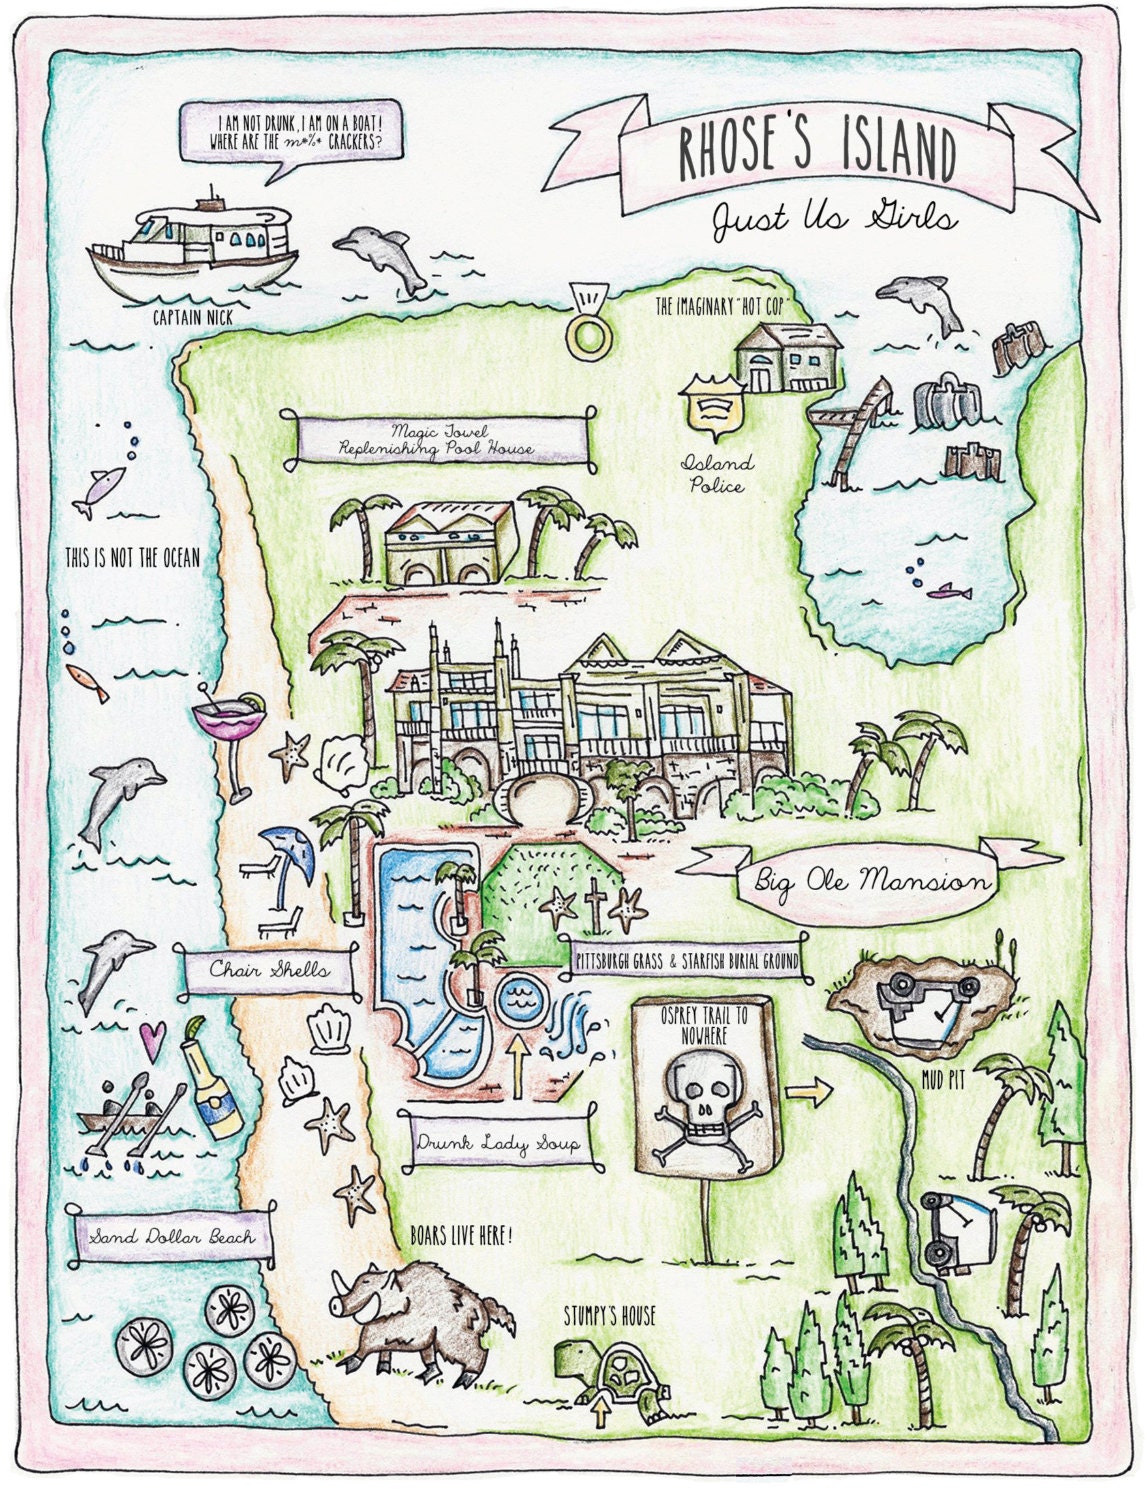 I AM NOT DRUNK, I AM ON A BOAT!
WHERE ARE THE m*%* CRACKERS?
RHOSE'S ISLAND
Just Us Girls
CAPTAIN NICK
THE IMAGINARY "HOT COP"
Magic Towel
Replenishing Pool House
Island
Police
THIS IS NOT THE OCEAN
Big Ole Mansion
Chair Shells
PITTSBURGH GRASS & STARFISH BURIAL GROUND
OSPREY TRAIL TO
NOWHERE
MUD PIT
Drunk Lady Soup
Sand Dollar Beach
BOARS LIVE HERE!
STUMPY'S HOUSE